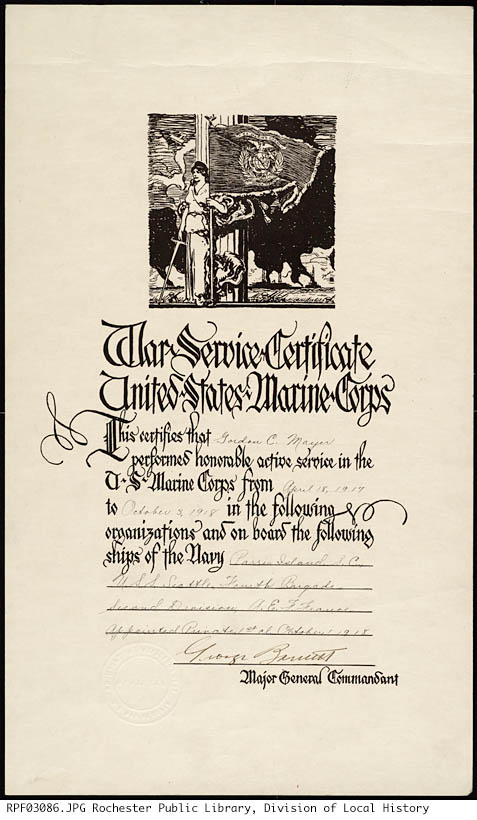 War Service Certificate
United States Marine Corps
This certifies that Gordon C. Mayer
performed honorable active service in the
U S Marine Corps from April 18, 1917
to October 3, 1918 in the following
organizations and on board the following
ships of the Navy Parris Island S. C.
U.S.S. Seattle, Fourth Brigade
Second Division A. E. F. France
Appointed Private 1st cl October 1 1918
George Barnett
Major General Commandant
RPF03086.JPG Rochester Public Library, Division of Local History